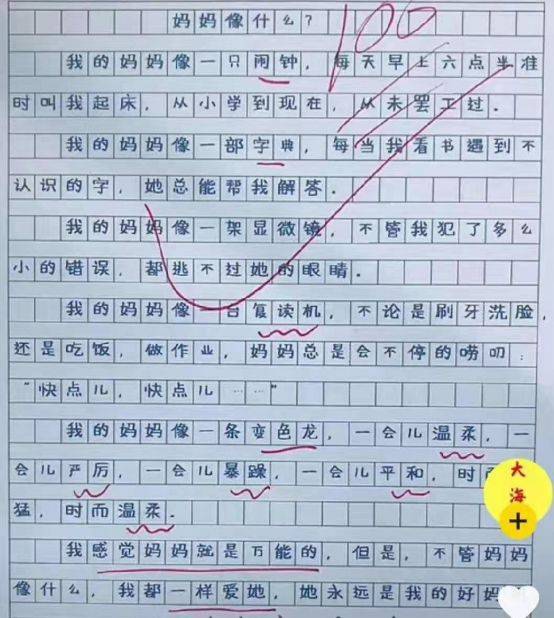 妈妈像什么？
100
我的妈妈像一只闹钟，每天早上六点半准
时叫我起床，从小学到现在，从未罢工过．
我的妈妈像一部字典，每当我看书遇到不
认识的字，她总能帮我解答．
我的妈妈像一架显微镜，不管我犯了多么
小的错误，都逃不过她的眼睛．
我的妈妈像一台复读机，不论是刷牙洗脸，
还是吃饭，做作业，妈妈总是会不停的唠叨：
“快点儿，快点儿……”
我的妈妈像一条变色龙，一会儿温柔，一
会儿严厉，一会儿暴躁，一会儿平和，时
猛，时而温柔．
我感觉妈妈就是万能的，但是，不管妈妈
像什么，我都一样爱她，她永远是我的好妈
大海